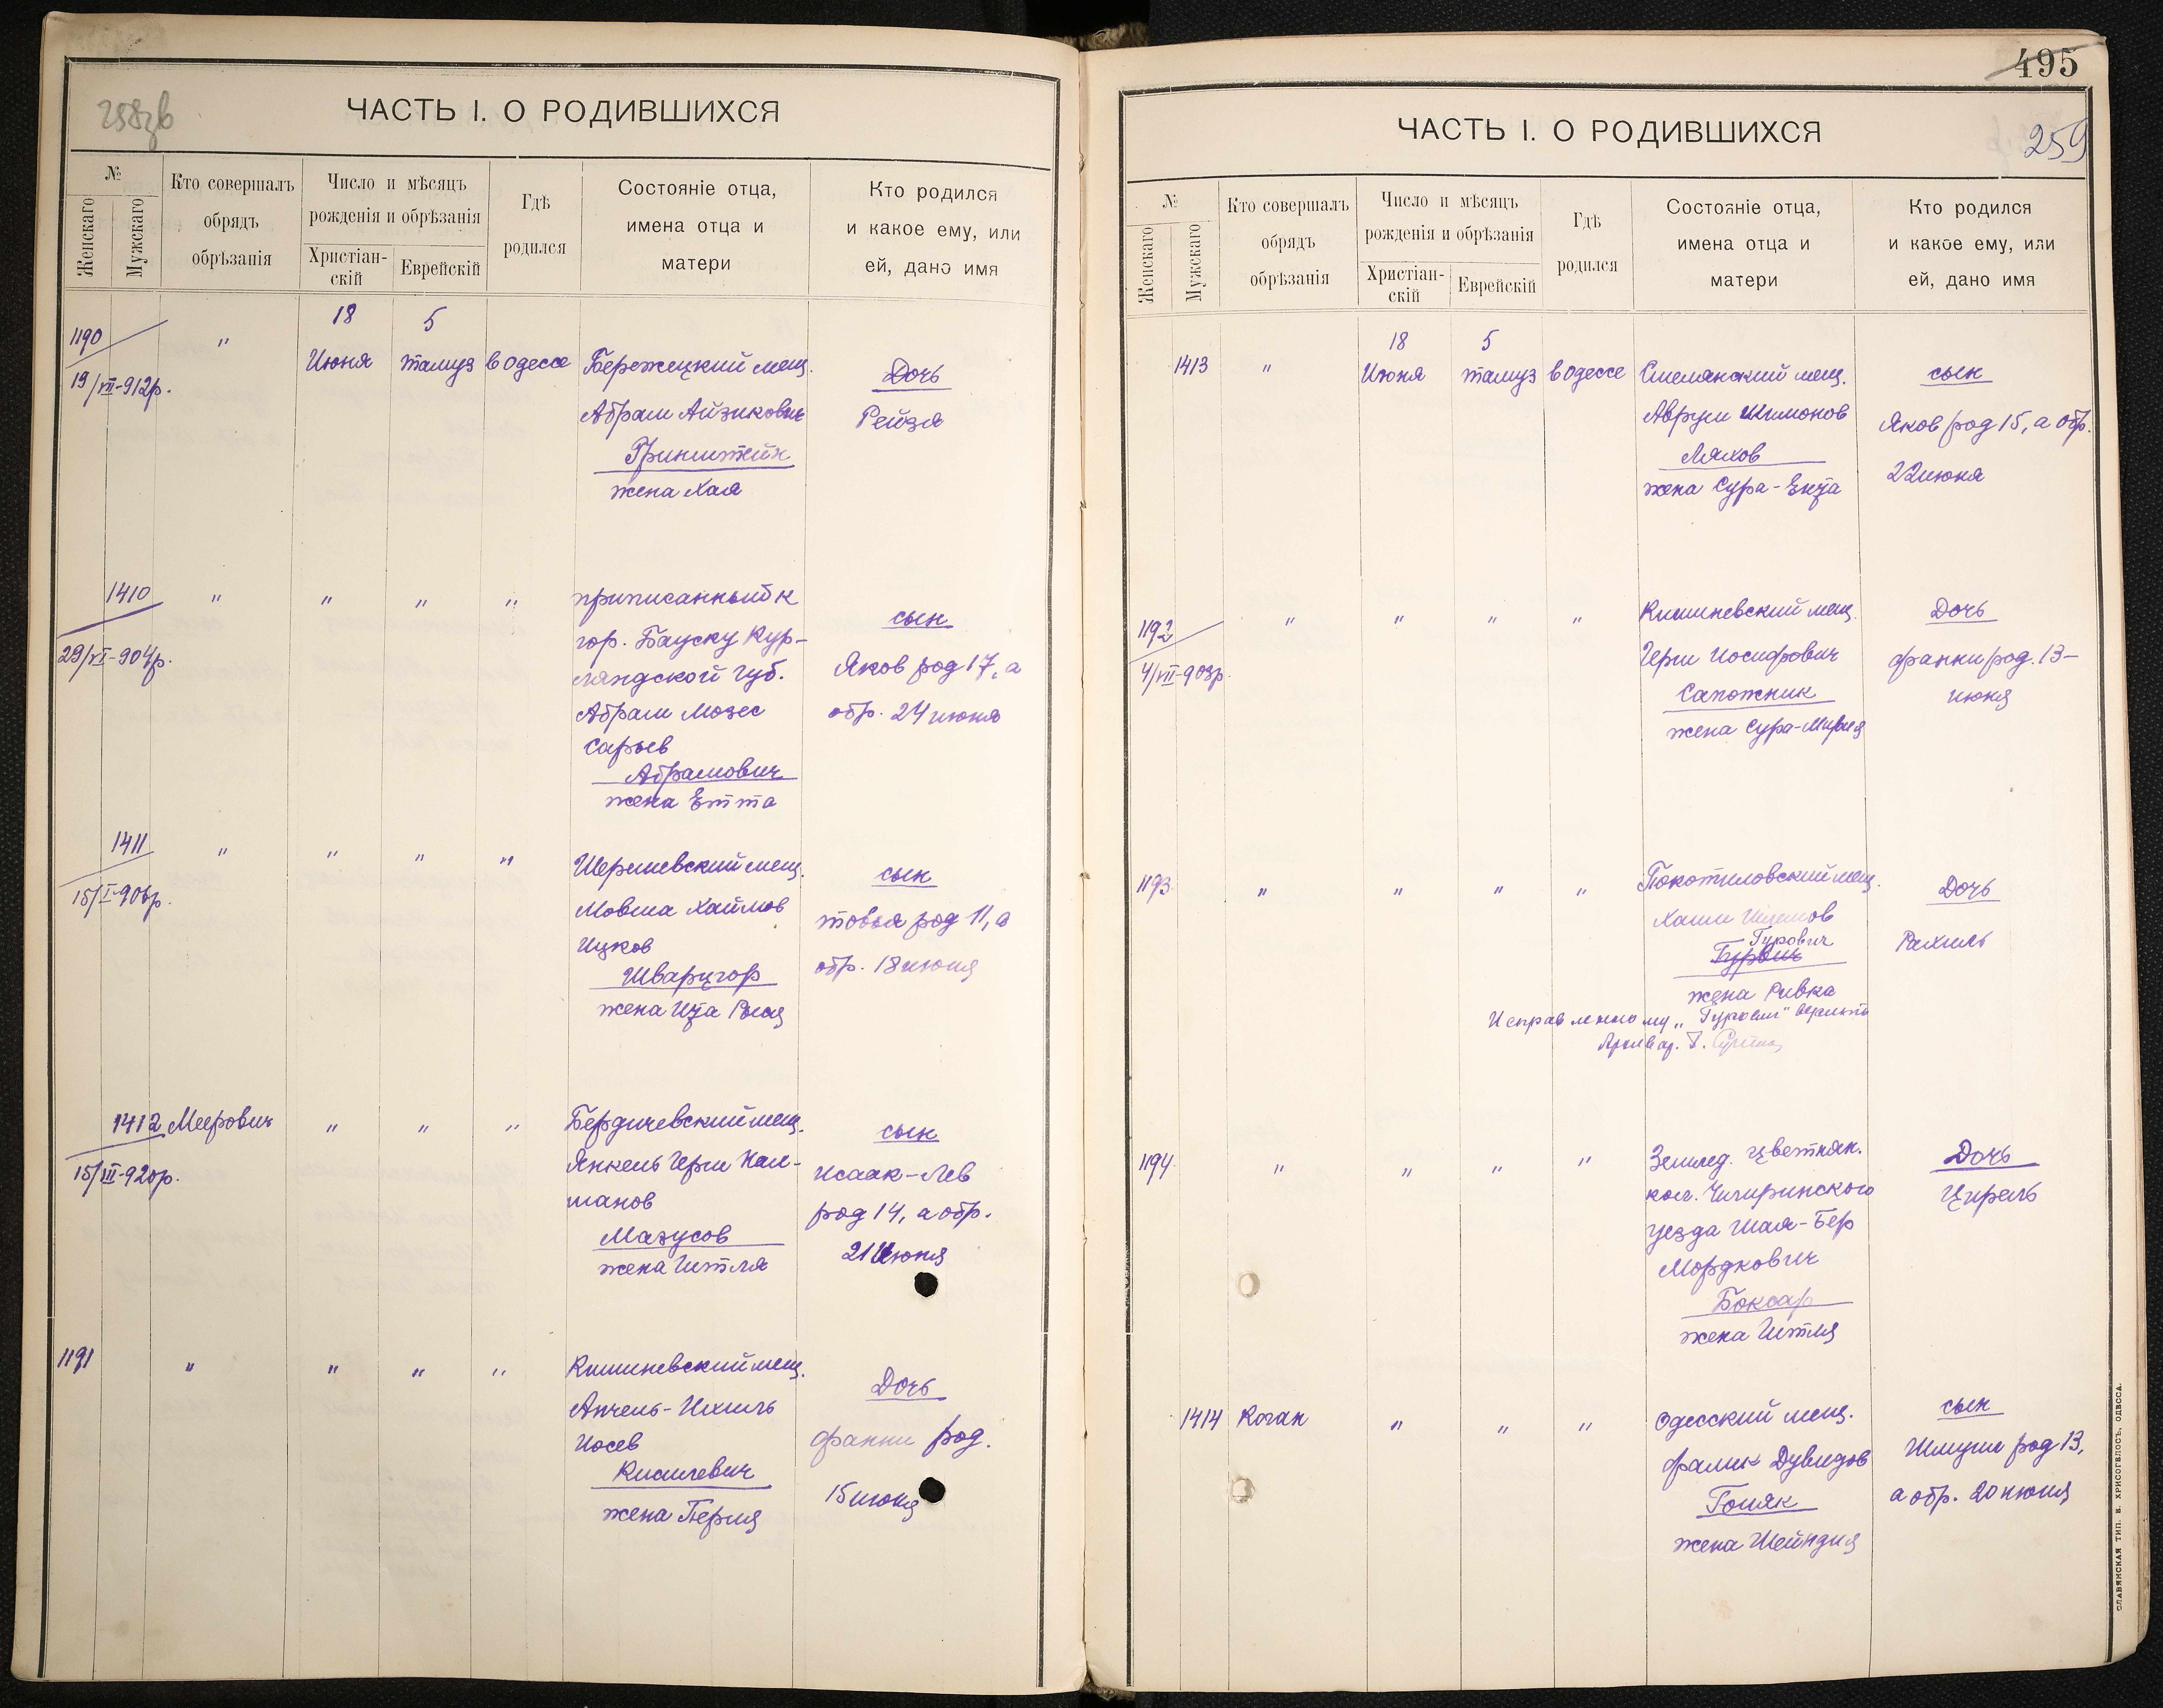 ЧАСТЬ I. О РОДИВШИХСЯ
№
Женскаго
Мужскаго
Кто совершалъ
обрядъ
обрѣзанія
Число и мѣсяцъ
рожденія и обрѣзанія
Христіан-
скій
Еврейскій
Гдѣ
родился
Состояніе отца,
имена отца и
матери
Кто родился
и какое ему, или
ей, дано имя
1190
19/VII-912р.
"
18
Июня
5
тамуз
в Одессе
Бережецкий мещ.
Абрам Айзикович
Гринштейн
жена Хая
Дочь
Рейзя
1410
29/VI-904р.
"
"
"
"
приписанный к
гор. Бауску Кур-
ляндской губ.
Абрам Мозес
Сарыев
Абрамович
жена Етта
сын
Яков род 17, а
обр. 24 июня
1411
"
"
"
"
Шершевский мещ.
Мовша Хаимов
Ицков
Шварцгор
жена Ида
сын
товья род 11, а
обр. 18 июня
1412
15/III-920р.
Меерович
"
"
"
Бердичевский мещ.
Янкель Герш Кал-
манов
Мазусов
жена Гитля
сын
Исаак-Лев
род 14, а обр.
21 Июня
1191
"
"
"
"
Кишиневский мещ.
Анчель-Ихиль
Иосев
Кисилевич
жена Перля
Дочь
фанни род.
15 июня
495
259
ЧАСТЬ I. О РОДИВШИХСЯ
№
Женскаго
Мужскаго
Кто совершалъ
обрядъ
обрѣзанія
Число и мѣсяцъ
рожденія и обрѣзанія
Христіан-
скій
Еврейскій
Гдѣ
родился
Состояніе отца,
имена отца и
матери
Кто родился
и какое ему, или
ей, дано имя
1413
"
18
Июня
5
тамуз
в Одессе
Смелянский мещ.
Аврум Шимонов
Ляхов
жена Сура-Ента
сын
Яков род 15, а обр.
22 июня
1192
"
"
"
"
Кишиневский мещ.
Герш Иосифович
Сапожник
жена Сура-Мирия
Дочь
фанни род. 13-
июня
1193
"
"
"
"
Покотиловский мещ.
Хаим
Гурович
жена Ривка
Исправленному "Гурович" верить
Архивар.
Дочь
Рахиль
1194
"
"
"
"
Землед. Цветнян.
кол. Чигиринского
уезда Шая-Бер
Мордкович
Боксар
жена Гитля
Дочь
Цирель
1414
Коган
"
"
"
Одесский мещ.
фалик Дувидов
Гоняк
жена Шейндля
сын
Шмуши род 13,
а обр. 20 июня
СЛАВЯНСКАЯ ТИП. Е. ХРИСОГЕЛОСЪ, ОДЕССА.